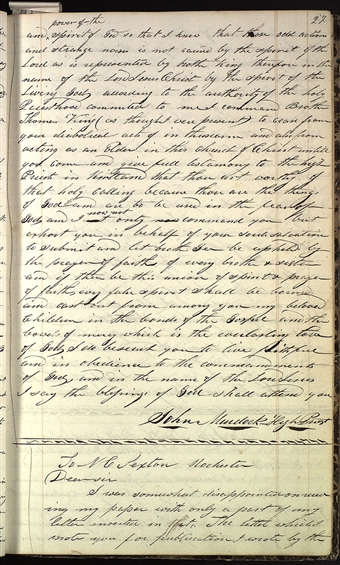 power of the 27
and spirit of God so that I knew that those odd actions
and strange noise is not caused by the spirit of the
Lord as is represented by brother King therefore in the
name of the Lord Jesus Christ by the spirit of the
living God according to the authority of the holy
Priesthood committed to me I command Brother
Thomas King (as though were present) to cease from
your diabolical acts of in thusiasm and also from
acting as an Elder in this Church of Christ untill
you come and give full testamony to the high
Priest in Kirtland that thou art worthy of
that holy calling because these are the things
of God and are to be used in the fear of
God and I now not only command you but
exhort you in behalf of your Souls salvation
to submit and let brother be upheld by
the prayer of faith of every brother & sister
and if there be this union of spirit & prayer
of faith every false spirit shall be bound
and cast out from among you my beloved
Children in the bonds of the Gospel and the
bowels of mercy which is the everlasting love
of God I do beseech you to live faithful
and in obedience to the commandments
of God and in the name of the Lord Jesus
I say the blessings of God shall attend you
John Murdock High Priest
To N C Sexton Rochester
Dear sir
I was somewhat disappointed on receiv
ing my paper with only a part of my
letter inserted in it. The letter which I
wrote you for publication I wrote by the